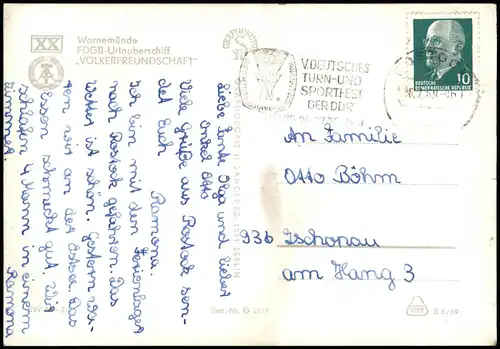 XX
Warnemünde
FDGB-Urlauberschiff
„VÖLKERFREUNDSCHAFT"
Liebe Tante Olga und lieber
Onkel Otto
Viele Grüße aus Rostock sen-
det Euch
Ramona.
Ich bin mit dem Ferienlager
nach Rostock gefahren. Das
Wetter ist schön. Gestern wa-
ren wir an der Ostsee. Das
Essen schmeckt gut. Wir
schlafen 4 Mann in einem
Zimmer.
Ramona
V. DEUTSCHES
TURN- UND
SPORTFEST
DER DDR
10
DEUTSCHE
DEMOKRATISCHE REPUBLIK
An Familie
Otto Böhm
936 Zschopau
am Hang 3
BERLIN
Best.-Nr. G
B 8/69